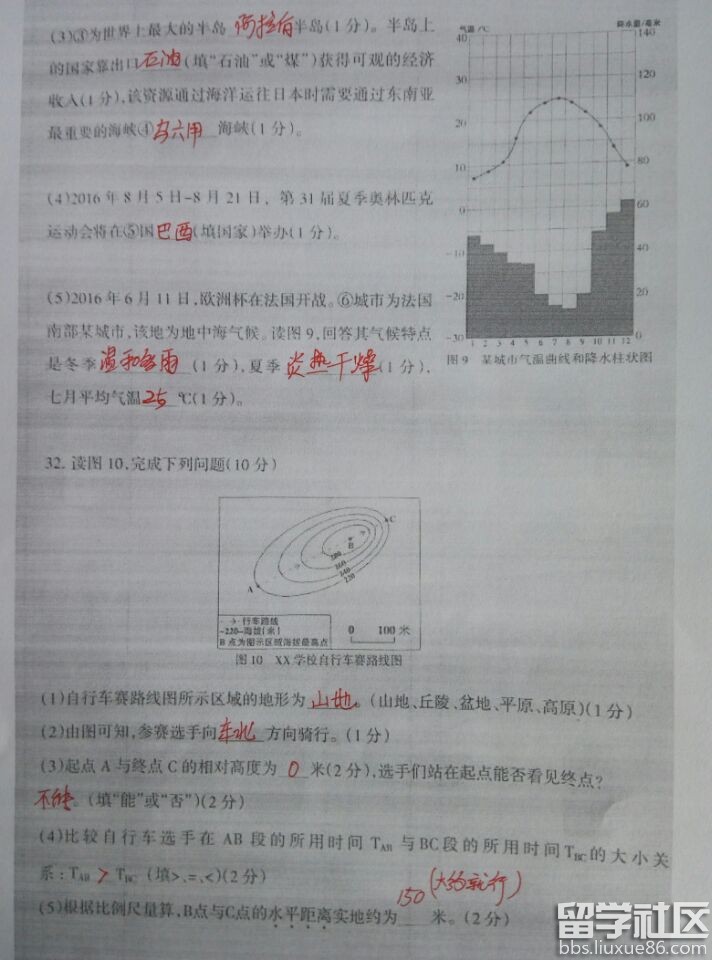 (3)③为世界上最大的半岛 阿拉伯半岛(1分)。半岛上
的国家靠出口石油(填“石油”或“煤”)获得可观的经济
收入(1分),该资源通过海洋运往日本时需要通过东南亚
最重要的海峡④马六甲 海峡(1分)。
(4)2016年8月5日-8月21日，第31届夏季奥林匹克
运动会将在⑤国巴西(填国家)举办(1分)。
(5)2016年6月11日,欧洲杯在法国开战。⑥城市为法国
南部某城市,该地为地中海气候。读图9,回答其气候特点
是冬季温和多雨(1分),夏季炎热干燥(1分),
七月平均气温25℃(1分)。
气温/℃ 降水量/毫米
40 140
30 120
100
20
10 80
0 60
-10 40
-20 20
-30 0
1 2 3 4 5 6 7 8 9 10 11 12
图9 某城市气温曲线和降水柱状图
32. 读图10,完成下列问题(10分)
C
B
380
360
340
220
A
→行车路线
-220-海拔(米)
B点为图示区域海拔最高点
0 100米
图10 XX学校自行车赛路线图
(1)自行车赛路线图所示区域的地形为 山地。(山地、丘陵、盆地、平原、高原)(1分)
(2)由图可知,参赛选手向东北方向骑行。(1分)
(3)起点A与终点C的相对高度为 0 米(2分),选手们站在起点能否看见终点?
不能。(填“能”或“否”)(2分)
(4)比较自行车选手在AB段的所用时间TAB与BC段的所用时间TBC的大小关
系:TAB > TBC (填>、=、<)(2分)
150 (大约就行)
(5)根据比例尺量算,B点与C点的水平距离实地约为 米。(2分)
留学社区
bbs.liuxue86.com